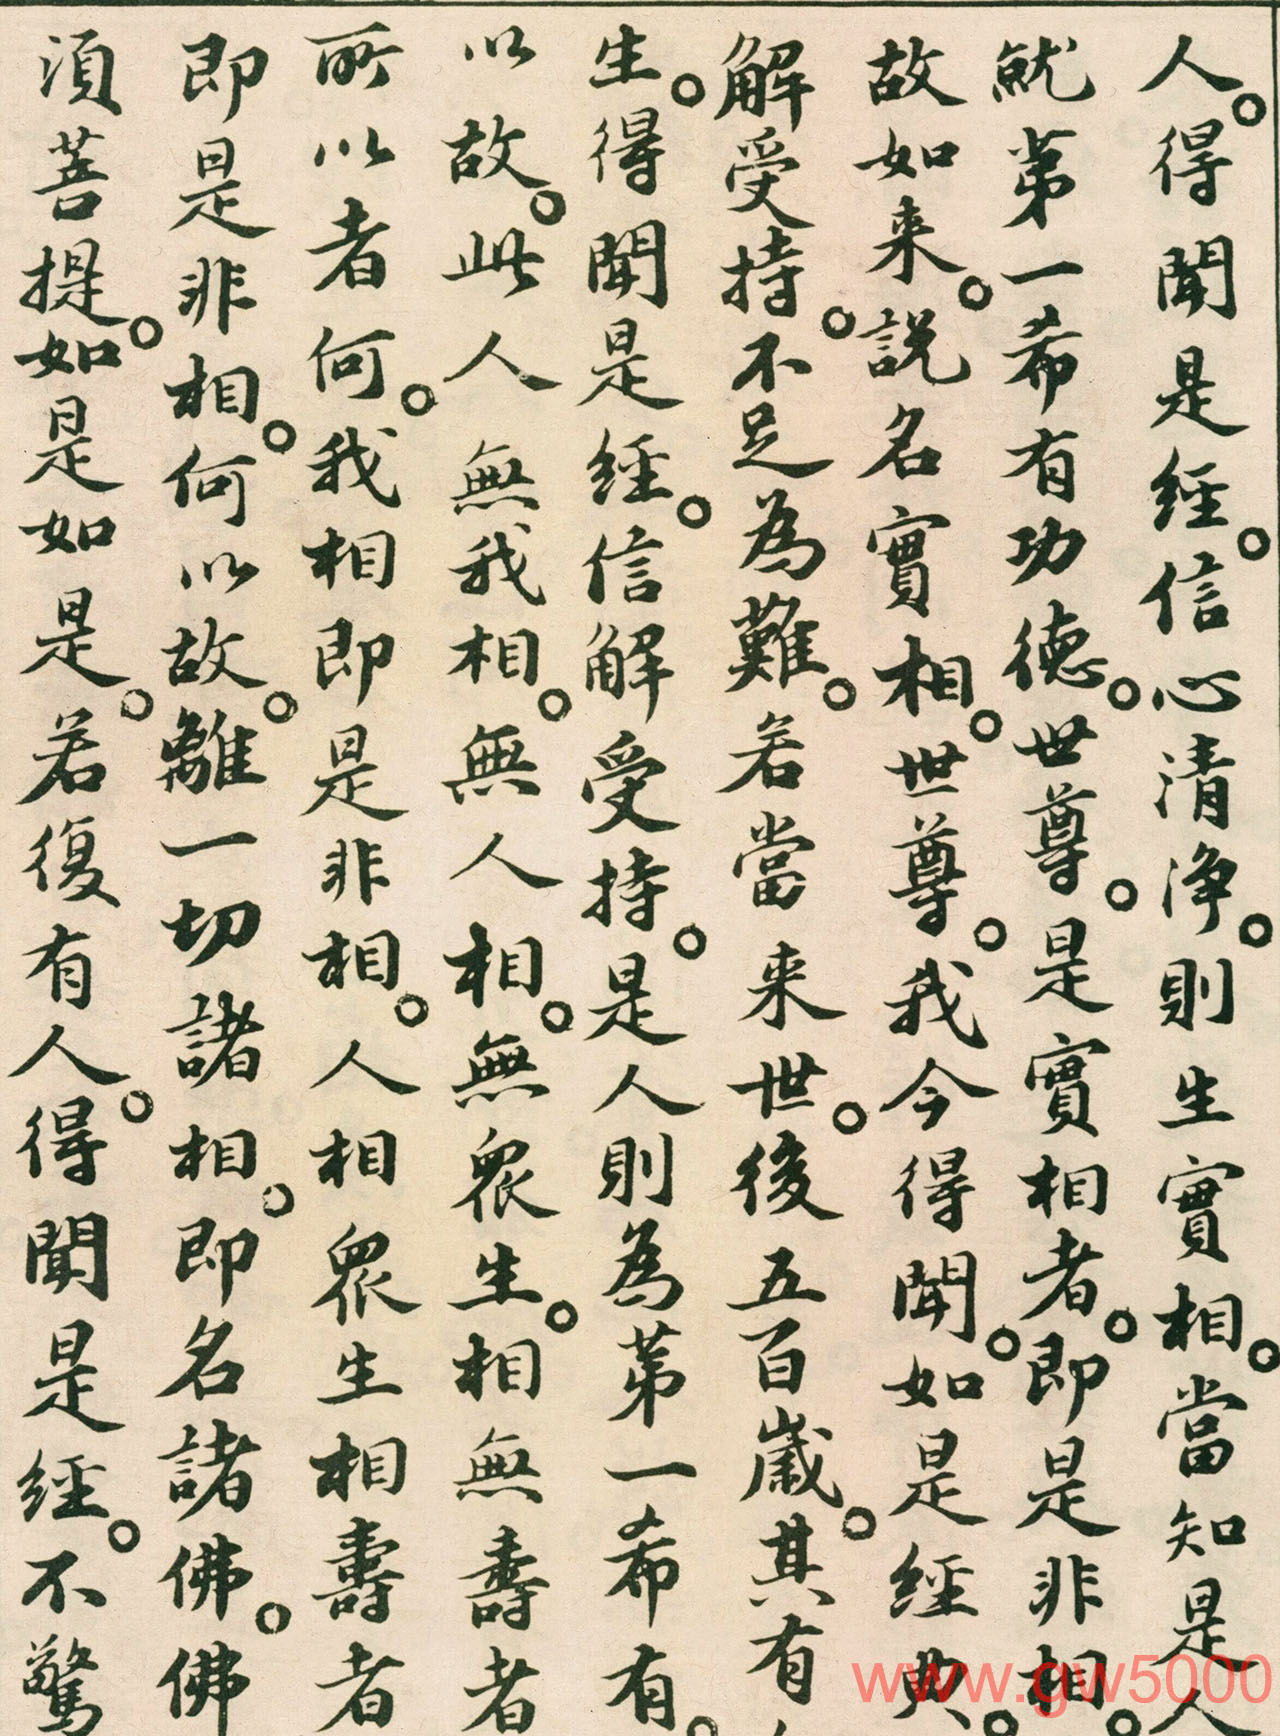 人。得聞是經。信心清淨。則生實相。當知是人
就第一希有功德。世尊。是實相者。即是非相。
故如来。説名實相。世尊。我今得聞。如是經典。
解受持。不足為難。若當来世。後五百歲。其有
生。得聞是經。信解受持。是人則為第一希有。
以故。此人無我相。無人相。無眾生。相無壽者
所以者何。我相即是非相。人相眾生相壽者
即是非相。何以故。離一切諸相。即名諸佛。佛
須菩提。如是如是。若復有人。得聞是經。不驚
www.gw5000